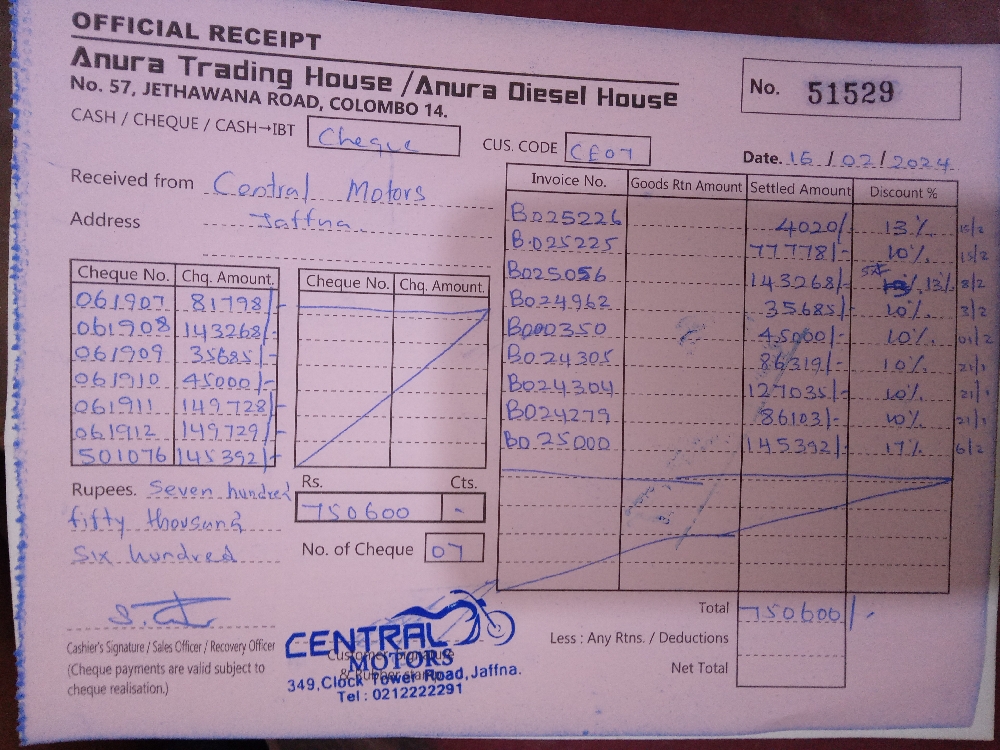 OFFICIAL RECEIPT
Anura Trading House / Anura Diesel House
No. 57, JETHAWANA ROAD, COLOMBO 14.
No. 51529
CASH / CHEQUE / CASH→IBT Cheque
CUS. CODE CE07
Date. 15 / 02 / 2024
Received from Central Motors
Address Jaffna
Invoice No. Goods Rtn Amount Settled Amount Discount %
B025226 4020/- 13% 15/2
B025225 77778/- 10% 15/2
B025056 143268/- 13% 8/2
B024962 35685/- 10% 3/2
B000350 45000/- 10% 01/2
B024305 86319/- 10% 21/1
B024304 127035/- 10% 21/1
B024279 86103/- 10% 21/1
B025000 145392/- 17% 6/2
Cheque No. Chq. Amount. Cheque No. Chq. Amount.
061907 81798/-
061908 143268/-
061909 35685/-
061910 45000/-
061911 149728/-
061912 149729/-
501076 145392/-
Rupees. Seven hundred
fifty thousand
Six hundred
Rs. Cts.
750600 -
No. of Cheque 07
Total 750600/-
Less : Any Rtns. / Deductions
Net Total
Cashier's Signature / Sales Officer / Recovery Officer
(Cheque payments are valid subject to
cheque realisation.)
Customer Signature
& Rubber stamp
CENTRAL
MOTORS
349,Clock Tower Road,Jaffna.
Tel : 0212222291